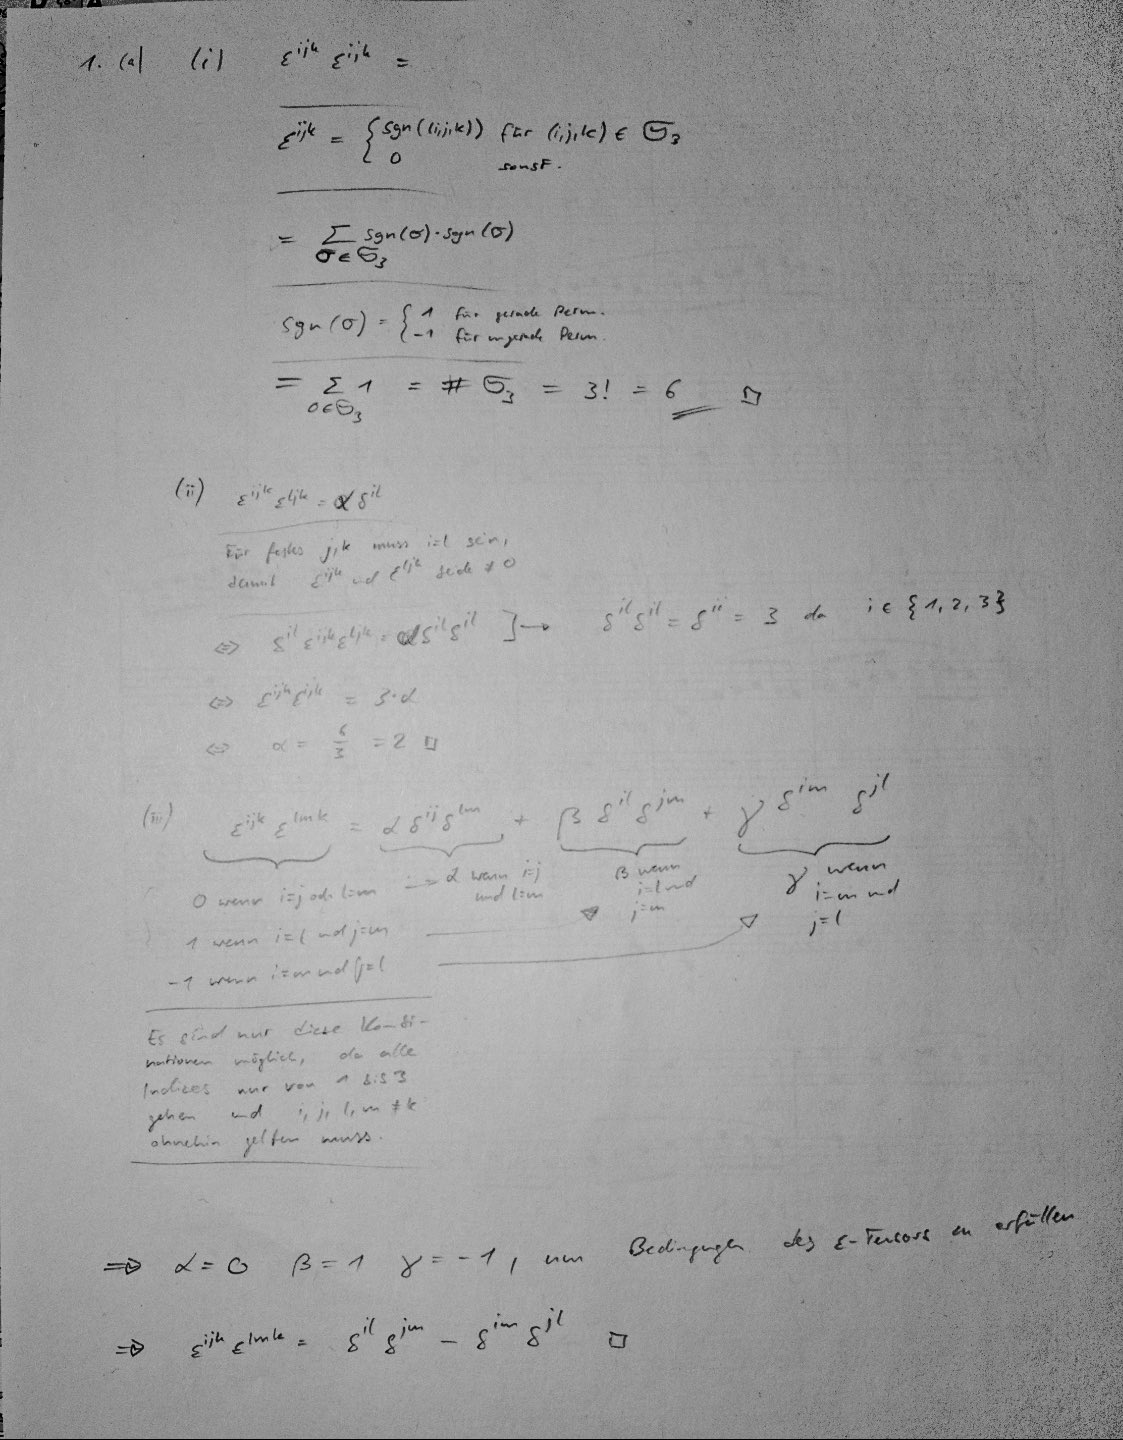 1. (a) (i) ε^{ijk} ε^{ijk} =
ε^{ijk} = { sgn((i,j,k)) für (i,j,k) ∈ 𝔖_3
0 sonst.
= Σ_{σ∈𝔖_3} sgn(σ)·sgn(σ)
sgn(σ) = { 1 für gerade Perm.
-1 für ungerade Perm.
= Σ_{σ∈𝔖_3} 1 = # 𝔖_3 = 3! = 6 □
(ii) ε^{ijk} ε^{ljk} = α δ^{il}
Für festes j,k muss i=l sein,
damit ε^{ijk} und ε^{ljk} beide ≠ 0
⇔ δ^{il} ε^{ijk} ε^{ljk} = α δ^{il} δ^{il} ]→ δ^{il} δ^{il} = δ^{ii} = 3 da i ∈ {1,2,3}
⇔ ε^{ijk} ε^{ijk} = 3·α
⇔ α = 6/3 = 2 □
(iii) ε^{ijk} ε^{lmk} = α δ^{ij} δ^{lm} + β δ^{il} δ^{jm} + γ δ^{im} δ^{jl}
0 wenn i=j oder l=m → α wenn i=j und l=m
β wenn i=l und j=m
γ wenn i=m und j=l
1 wenn i=l und j=m
-1 wenn i=m und j=l
Es sind nur diese Kombi-
nationen möglich, da alle
Indizes nur von 1 bis 3
gehen und i, j, l, m ≠ k
ohnehin gelten muss.
⇒ α = 0 β = 1 γ = -1, um Bedingungen des ε-Tensors zu erfüllen
⇒ ε^{ijk} ε^{lmk} = δ^{il} δ^{jm} - δ^{im} δ^{jl} □